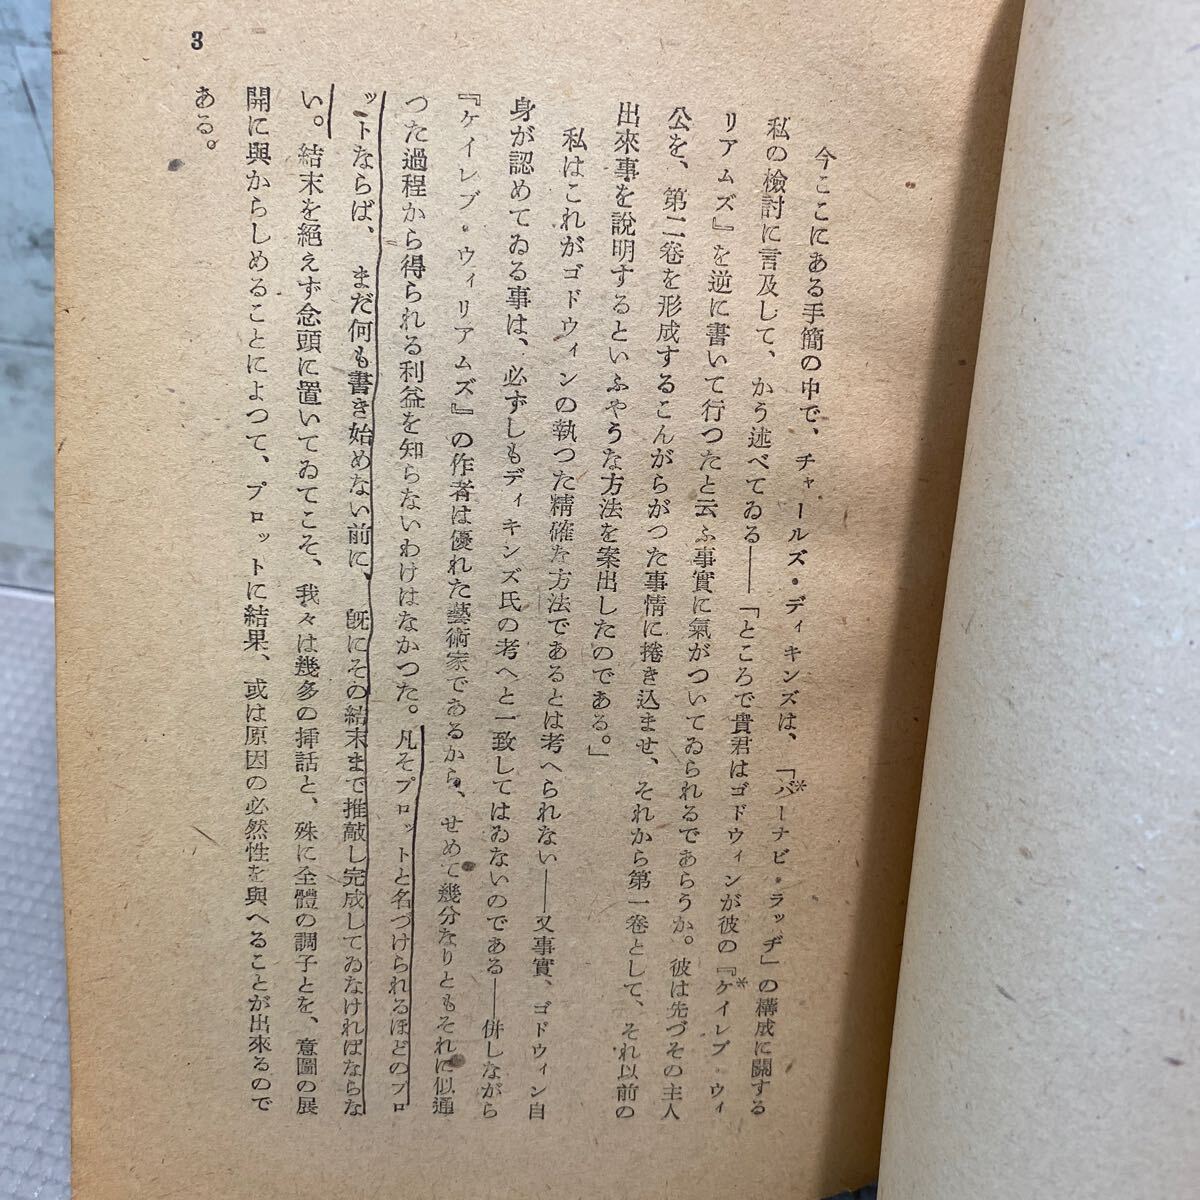 今ここにある手簡の中で、チャールズ・ディキンズは、「バーナビ・ラッヂ」の構成に關する
私の檢討に言及して、かう述べてゐる――「ところで貴君はゴドウィンが彼の『ケイレブ・ウィ
リアムズ』を逆に書いて行つたと云ふ事實に氣がついてゐられるであらうか。彼は先づその主人
公を、第二卷を形成するこんがらがつた事情に捲き込ませ、それから第一卷として、それ以前の
出來事を說明するといふやうな方法を案出したのである。」
私はこれがゴドウィンの執つた精確な方法であるとは考へられない――又事實、ゴドウィン自
身が認めてゐる事は、必ずしもディキンズ氏の考へと一致してはゐないのである――併しながら
『ケイレブ・ウィリアムズ』の作者は優れた藝術家であるから、せめて幾分なりともそれに似通
つた過程から得られる利益を知らないわけはなかつた。凡そプロットと名づけられるほどのプロ
ットならば、まだ何も書き始めない前に、旣にその結末まで推敲し完成してゐなければならな
い。結末を絕えず念頭に置いてゐてこそ、我々は幾多の揷話と、殊に全體の調子とを、意圖の展
開に與からしめることによつて、プロットに結果、或は原因の必然性を與へることが出來るので
ある。
3